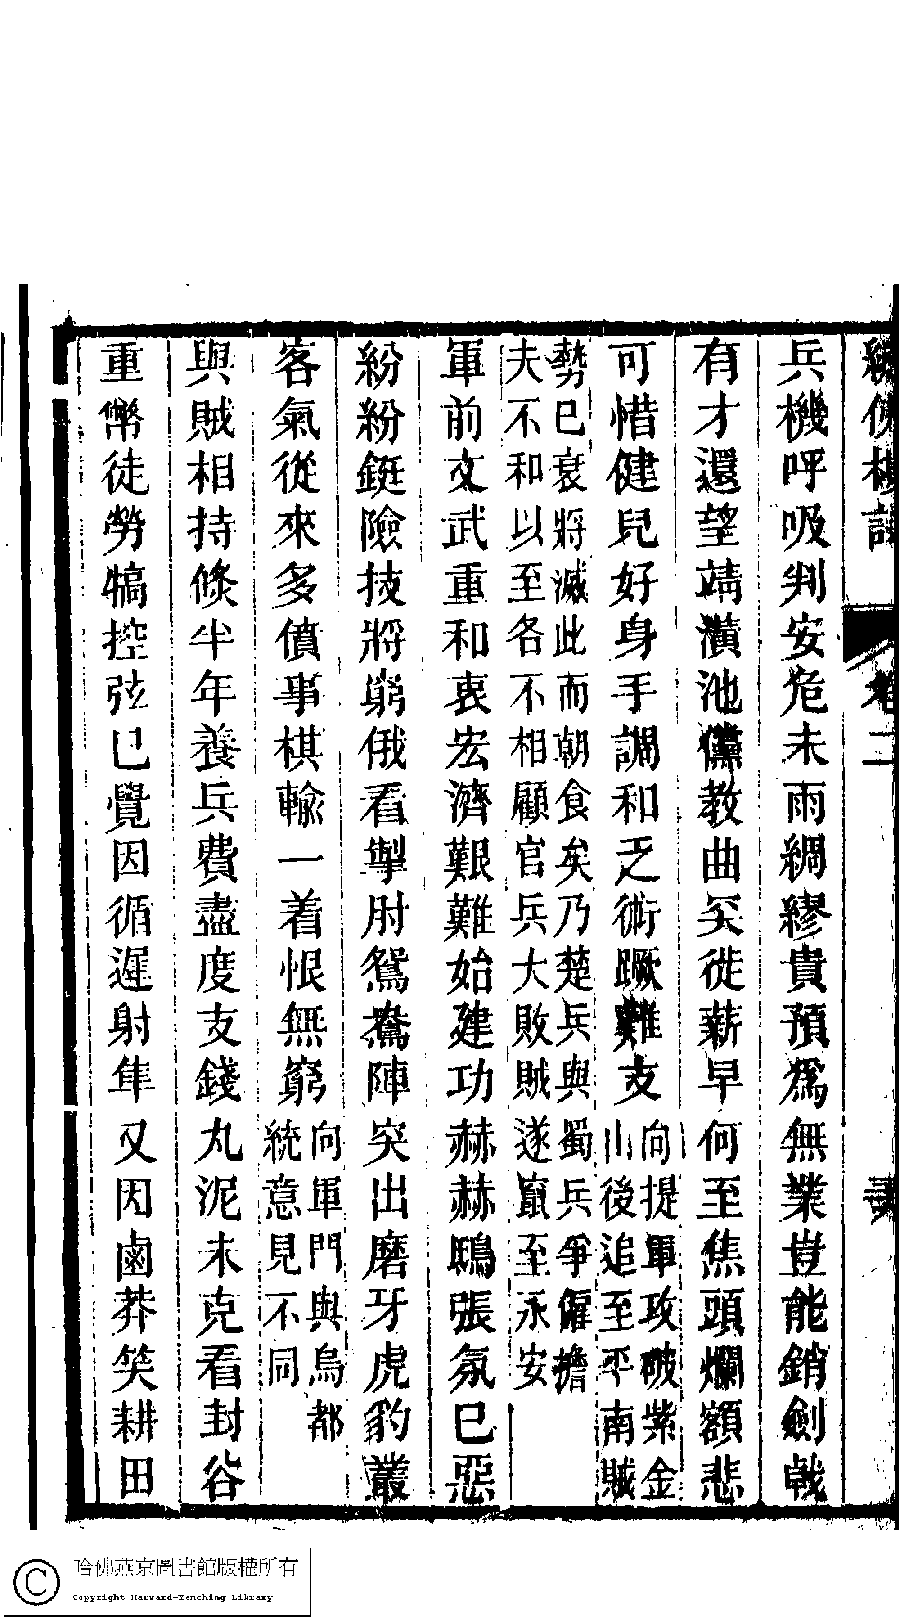 卷二
兵機呼吸判安危未雨綢繆貴預爲無業豈能銷劍戟
有才還望靖潢池儻教曲突徙薪早何至焦頭爛額悲
可惜健兒好身手調和乏術蹶難支向提軍攻破紫金
山後追至平南賊
勢已衰將滅此而朝食矣乃楚兵與蜀兵爭僱擔
夫不和以至各不相顧官兵大敗賊遂竄至永安
軍前文武重和衷宏濟艱難始建功赫赫鴟張氛已惡
紛紛鋌險技將窮俄看掣肘鴛鴦陣突出磨牙虎豹叢
客氣從來多僨事棋輸一着恨無窮向軍門與烏都
統意見不同
與賊相持倏半年養兵費盡度支錢丸泥未克看封谷
重幣徒勞犒控弦已覺因循遲射隼又因鹵莽笑耕田
哈佛燕京圖書館版權所有
Copyright Harvard-Yenching Library